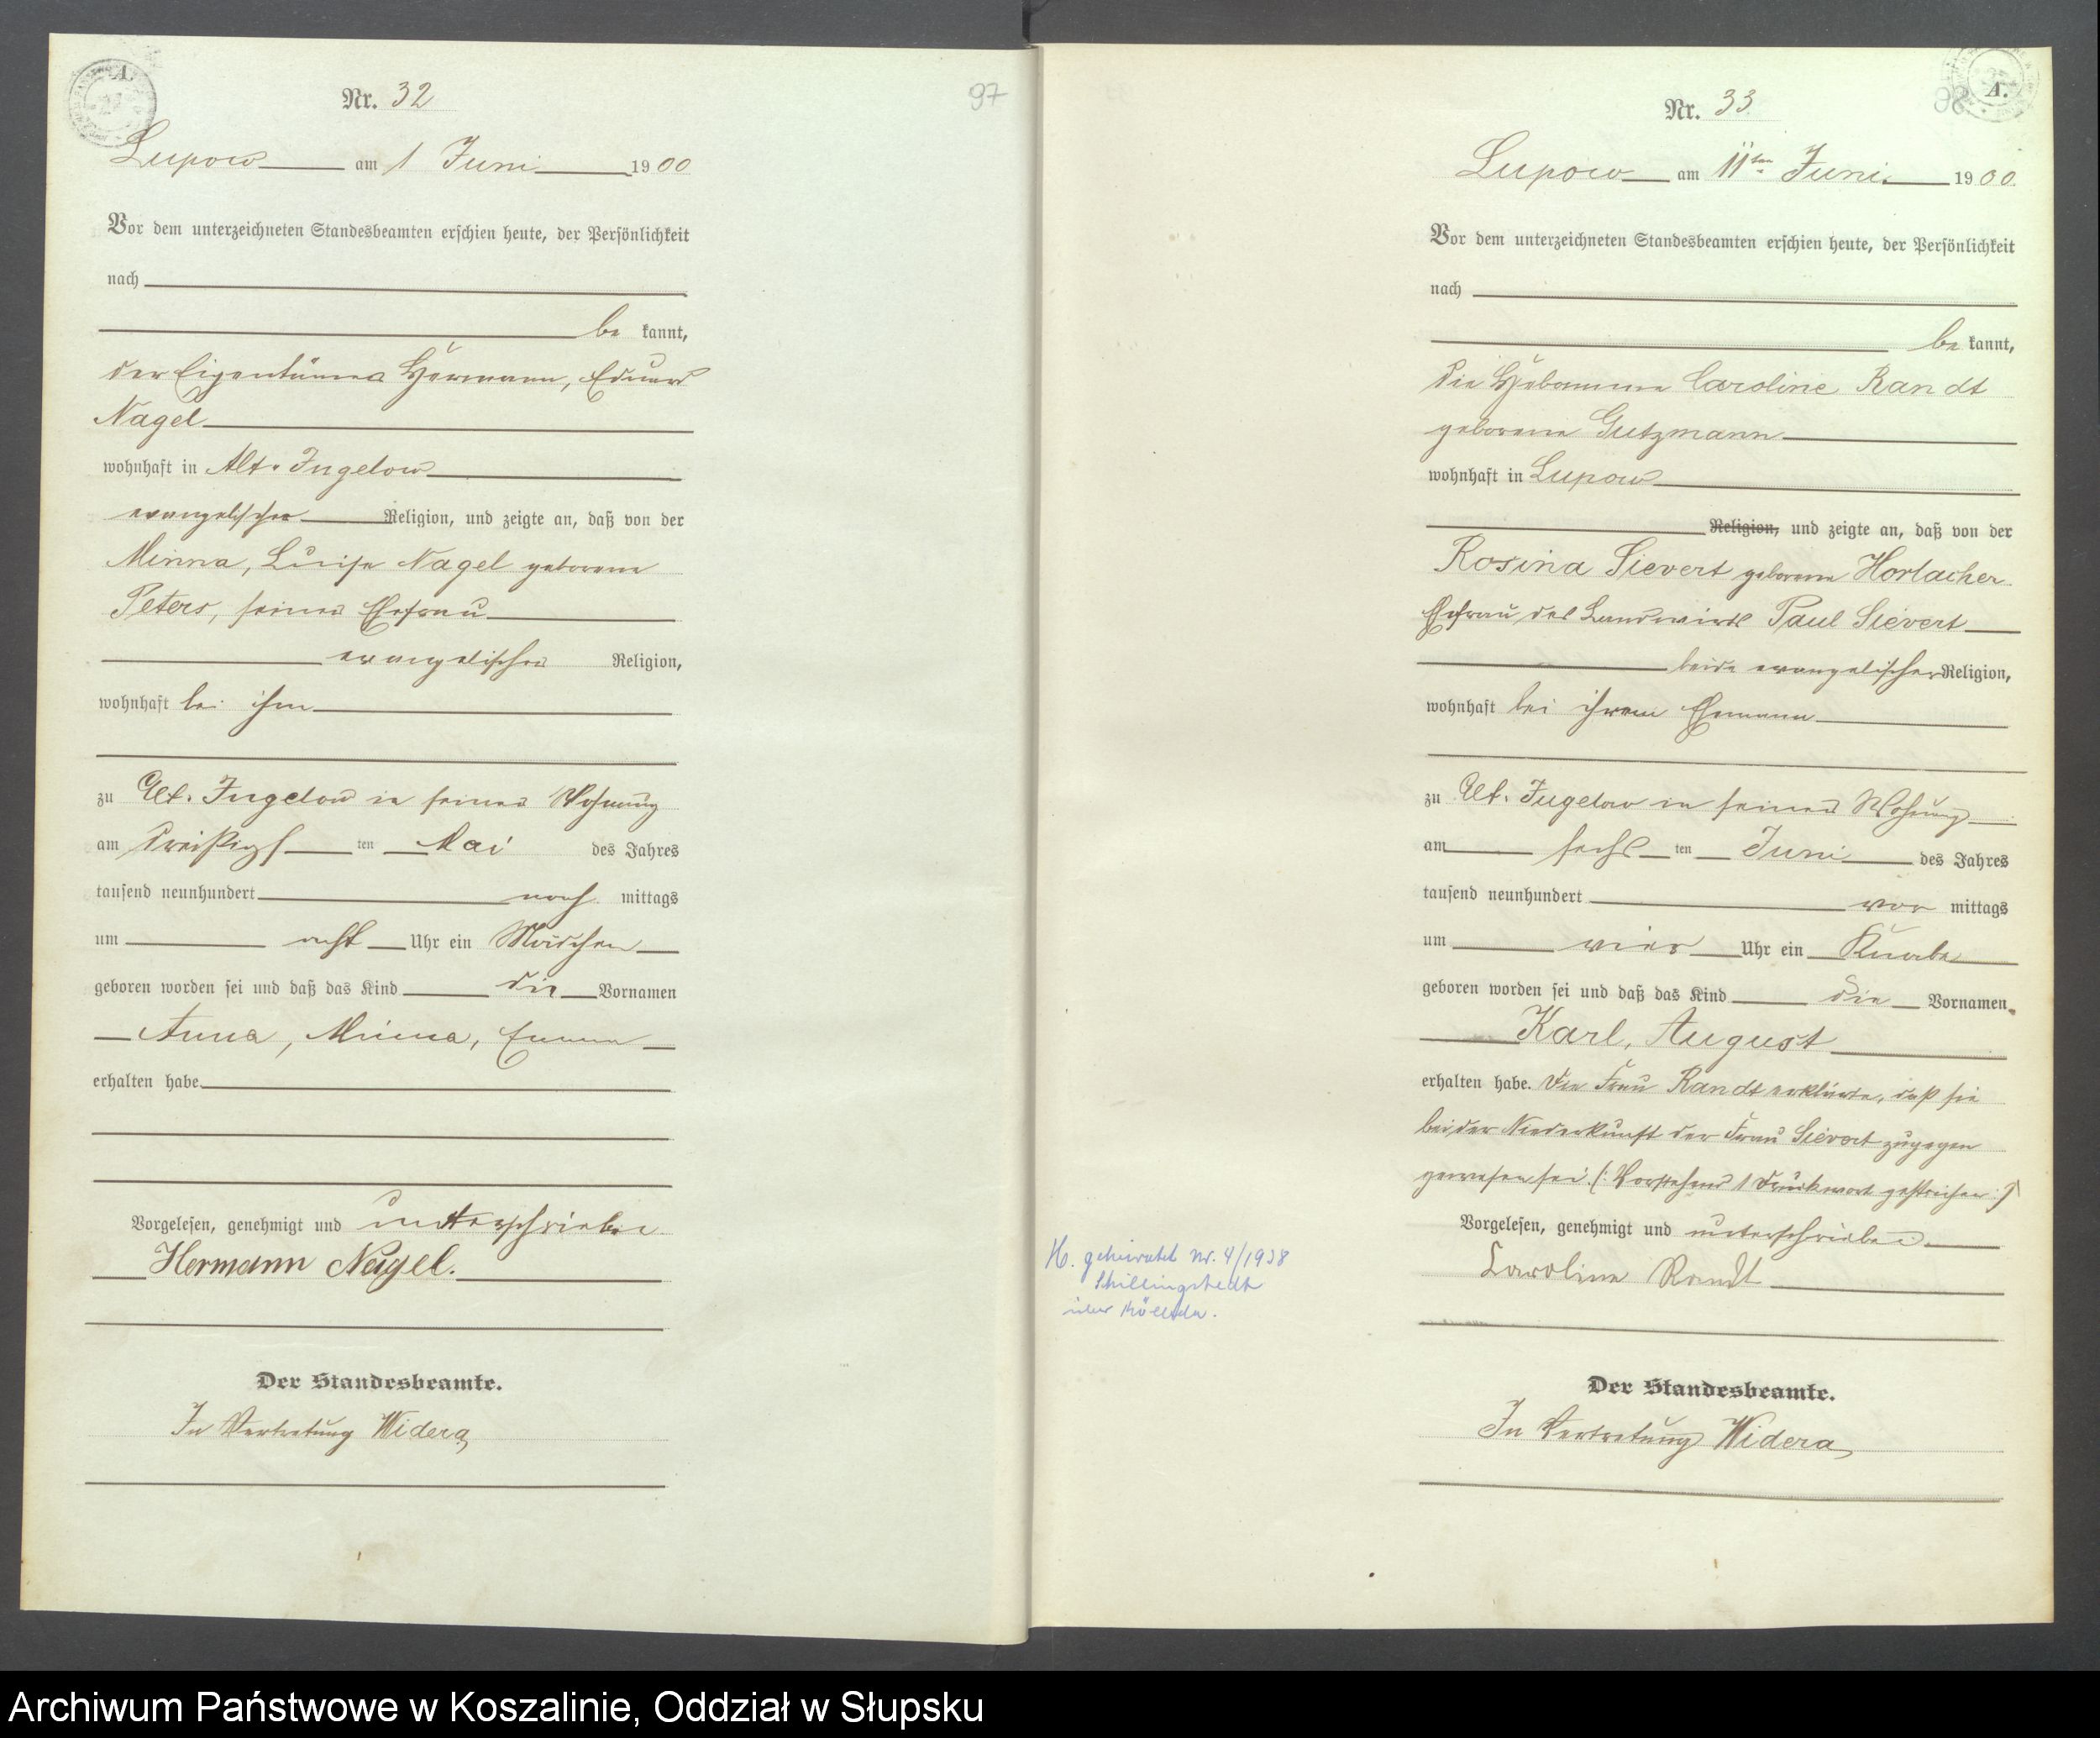 A.
Nr. 32
97
Lupow am 1 Juni 1900
Vor dem unterzeichneten Standesbeamten erschien heute, der Persönlichkeit
nach
be kannt,
der Eigentümer Hermann, Eduard
Nagel
wohnhaft in Alt-Jugelow
evangelischer Religion, und zeigte an, daß von der
Minna, Luise Nagel geborene
Peters, seiner Ehefrau
evangelischer Religion,
wohnhaft bei ihm
zu Alt. Jugelow in seiner Wohnung
am dreißigs ten Mai des Jahres
tausend neunhundert nach mittags
um acht Uhr ein Mädchen
geboren worden sei und daß das Kind die Vornamen
Anna, Minna, Emma
erhalten habe
Vorgelesen, genehmigt und unterschrieben
Hermann Nagel.
Der Standesbeamte.
In Vertretung Widera
A.
98
Nr. 33
Lupow am 11ten Juni 1900.
Vor dem unterzeichneten Standesbeamten erschien heute, der Persönlichkeit
nach
be kannt,
die Hebamme Caroline Randt
geborene Gutzmann
wohnhaft in Lupow
Religion, und zeigte an, daß von der
Rosina Sievert geborene Horlacher
Ehefrau des Landwirts Paul Sievert
beide evangelischer Religion,
wohnhaft bei ihrem Ehemann
zu Alt. Jugelow in seiner Wohnung
am sechs ten Juni des Jahres
tausend neunhundert vor mittags
um vier Uhr ein Knabe
geboren worden sei und daß das Kind die Vornamen
Karl, August
erhalten habe. Die Frau Randt erklärte, daß sie
bei der Niederkunft der Frau Sievert zugegen
gewesen sei. (: Vorstehend 1 Druckwort gestrichen :)
Vorgelesen, genehmigt und unterschrieben
Caroline Randt
H. geheiratet Nr. 4/1938
Schillingstedt
über Kölleda.
Der Standesbeamte.
In Vertretung Widera
Archiwum Państwowe w Koszalinie, Oddział w Słupsku